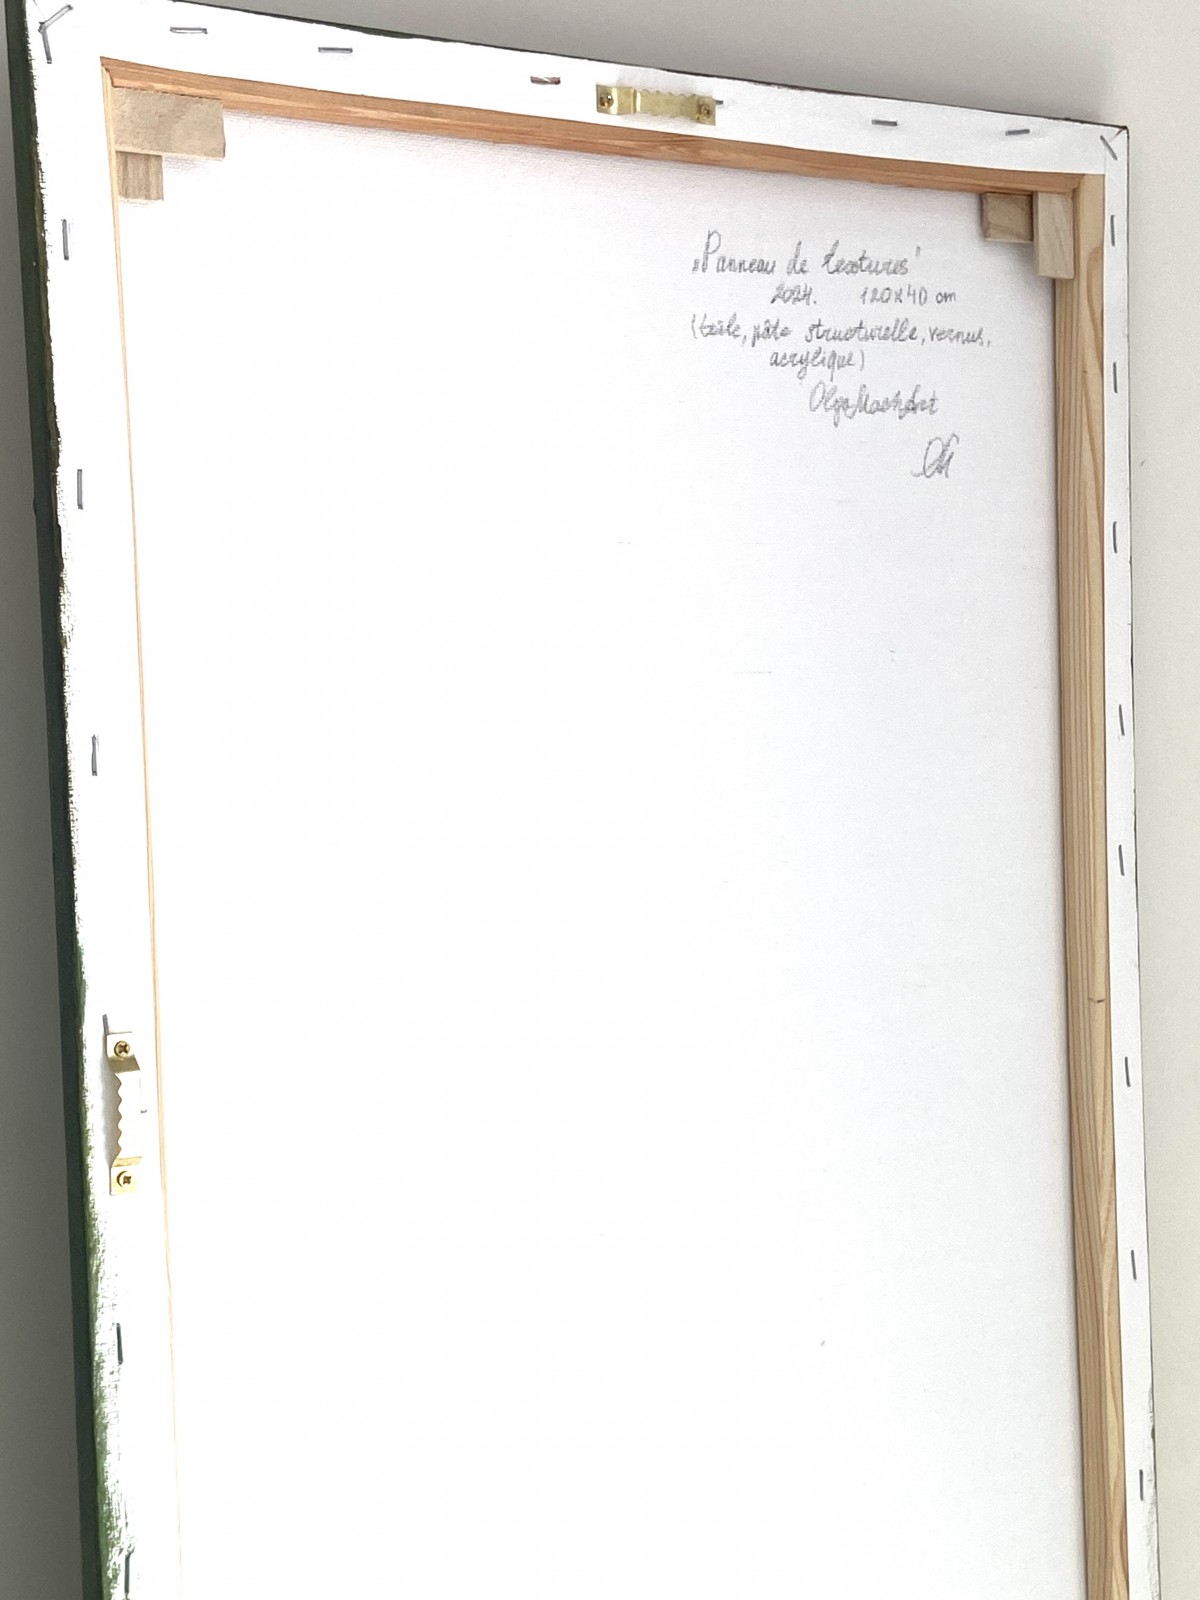 „Panneau de textures"
2024. 120x40 cm
(toile, pâte structurelle, vernus,
acrylique)
OlgaMashArt